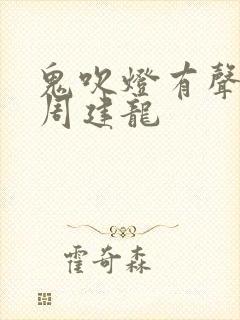 鬼吹燈有聲
周建龍
霍奇森